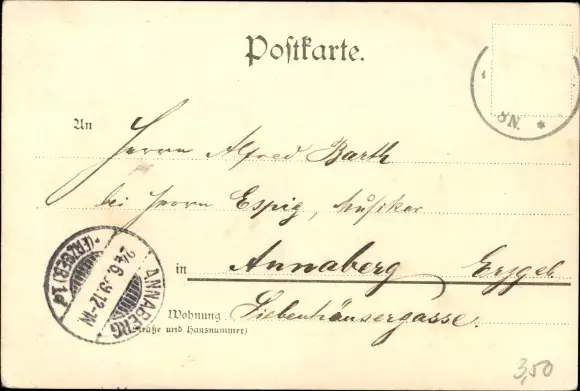 Postkarte.
8N. *
An Herrn Alfred Barth
bei Herrn Espig, Musiker
in Annaberg Erzgeb.
Wohnung Siebenhäusergasse.
(Straße und Hausnummer)
ANNABERG *(ERZGEB.) 1d
24.6.99.12-1N.
3,50